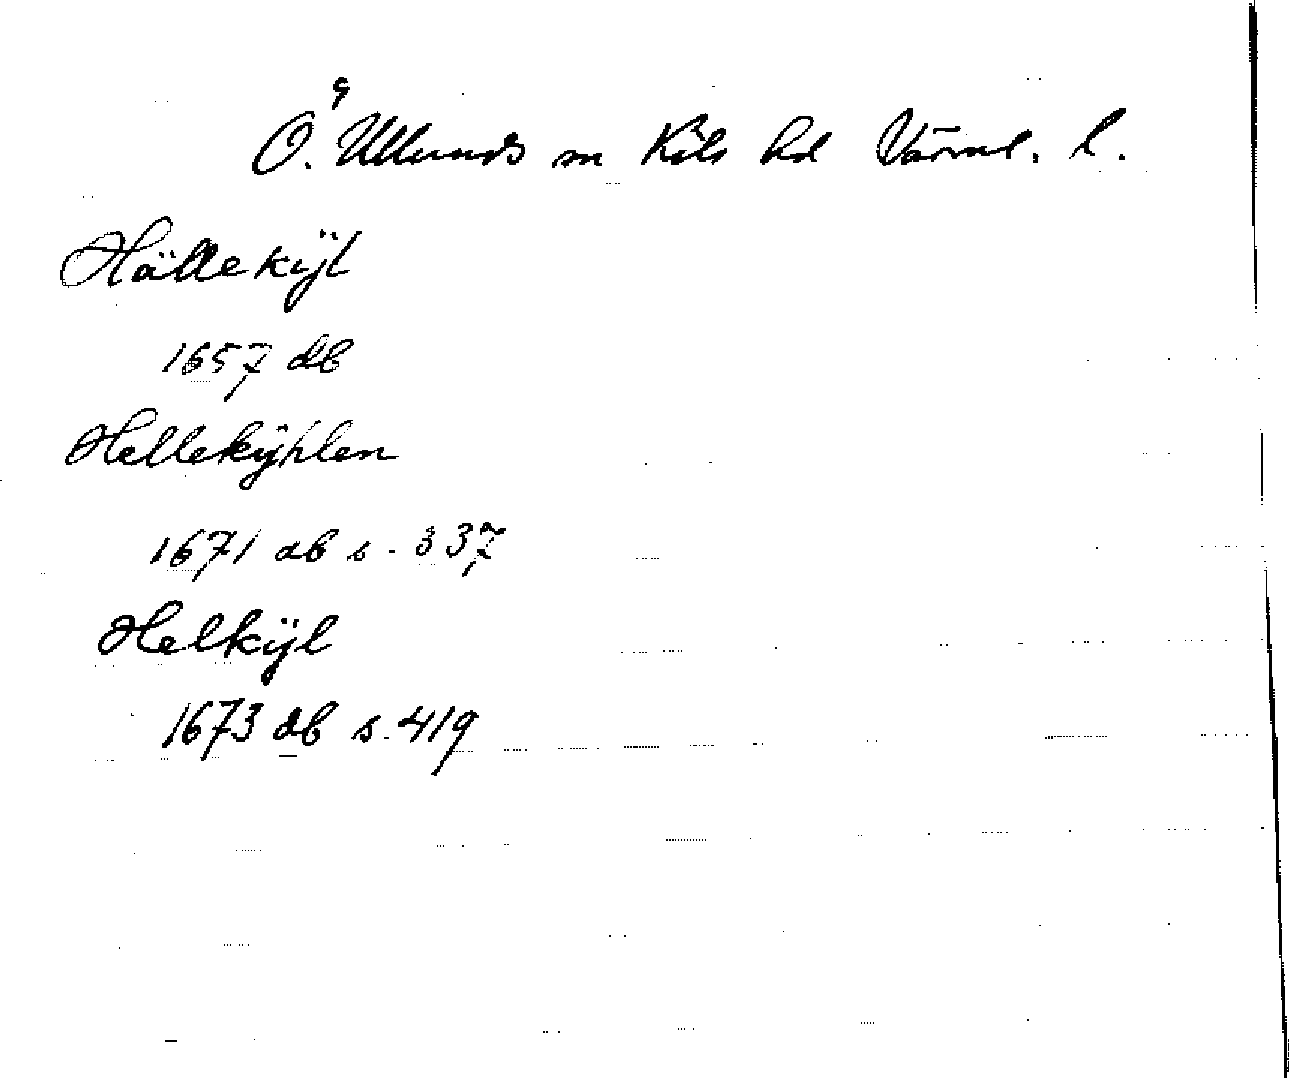 Ö. Ulleruds sn Kils hd Värml. l.
Hällekÿl
1657 db
Hellekÿhlen
1671 db s. 337
Helkÿl
1673 db s. 419